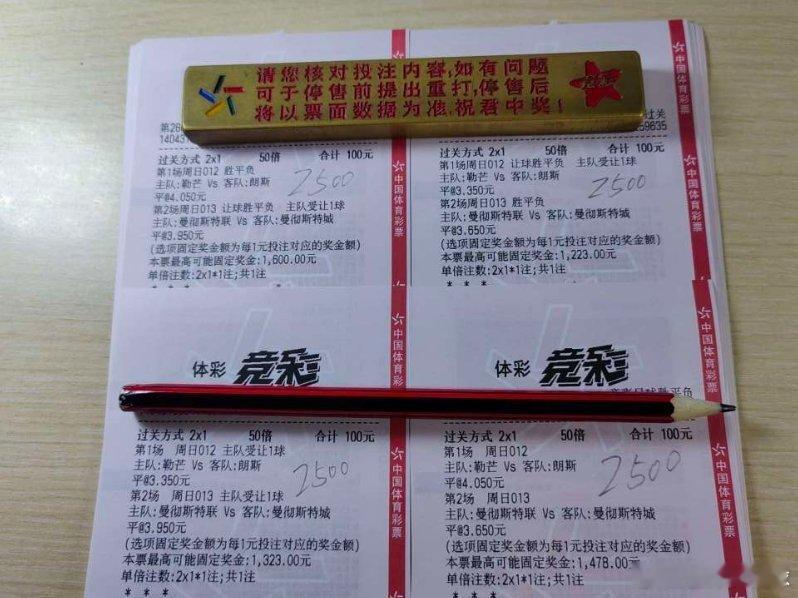 请您核对投注内容,如有问题
可于停售前提出重打,停售后
将以票面数据为准,祝君中奖!
竞彩
中国体育彩票
过关方式 2x1 50倍 合计 100元
第1场周日012 胜平负
主队:勒芒 Vs 客队:朗斯
平@4.050元
第2场周日013 让球胜平负 主队受让1球
主队:曼彻斯特联 Vs 客队:曼彻斯特城
平@3.950元
(选项固定奖金额为每1元投注对应的奖金额)
本票最高可能固定奖金:1,600.00元
单倍注数:2x1*1注;共1注
2500
中国体育彩票
过关
59635
过关方式 2x1 50倍 合计 100元
第1场周日012 让球胜平负 主队受让1球
主队:勒芒 Vs 客队:朗斯
平@3.350元
第2场周日013 胜平负
主队:曼彻斯特联 Vs 客队:曼彻斯特城
平@3.650元
(选项固定奖金额为每1元投注对应的奖金额)
本票最高可能固定奖金:1,223.00元
单倍注数:2x1*1注;共1注
2500
中国体育彩票
体彩 竞彩
过关方式 2x1 50倍 合计 100元
第1场 周日012 主队受让1球
主队:勒芒 Vs 客队:朗斯
平@3.350元
第2场 周日013 主队受让1球
主队:曼彻斯特联 Vs 客队:曼彻斯特城
平@3.950元
(选项固定奖金额为每1元投注对应的奖金额)
本票最高可能固定奖金:1,323.00元
单倍注数:2x1*1注;共1注
2500
中国体育彩票
体彩 竞彩
过关方式 2x1 50倍 合计 100元
第1场 周日012
主队:勒芒 Vs 客队:朗斯
平@4.050元
第2场 周日013
主队:曼彻斯特联 Vs 客队:曼彻斯特城
平@3.650元
(选项固定奖金额为每1元投注对应的奖金额)
本票最高可能固定奖金:1,478.00元
单倍注数:2x1*1注;共1注
2500
中国体育彩票
中国体育彩票